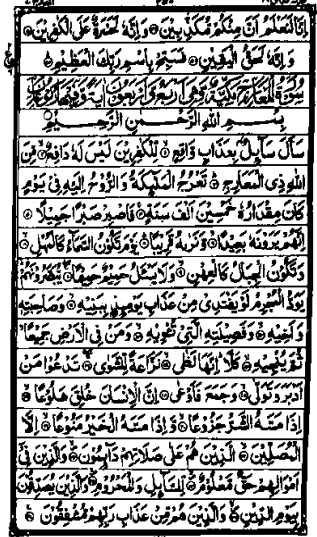 وَاِنَّا لَنَعْلَمُ اَنَّ مِنْكُمْ مُّكَذِّبِيْنَ ۞ وَاِنَّهٗ لَحَسْرَةٌ عَلَى الْكٰفِرِيْنَ ۞
وَاِنَّهٗ لَحَقُّ الْيَقِيْنِ ۞ فَسَبِّحْ بِاسْمِ رَبِّكَ الْعَظِيْمِ ۞
سُوْرَةُ الْمَعَارِجِ مَكِّيَّةٌ وَّهِيَ اَرْبَعٌ وَّاَرْبَعُوْنَ اٰيَةً وَّفِيْهَا رُكُوْعَانِ
بِسْمِ اللّٰهِ الرَّحْمٰنِ الرَّحِيْمِ
سَاَلَ سَآئِلٌۢ بِعَذَابٍ وَّاقِعٍ ۞ لِّلْكٰفِرِيْنَ لَيْسَ لَهٗ دَافِعٌ ۞ مِّنَ
اللّٰهِ ذِي الْمَعَارِجِ ۞ تَعْرُجُ الْمَلٰٓئِكَةُ وَالرُّوْحُ اِلَيْهِ فِيْ يَوْمٍ
كَانَ مِقْدَارُهٗ خَمْسِيْنَ اَلْفَ سَنَةٍ ۞ فَاصْبِرْ صَبْرًا جَمِيْلًا ۞
اِنَّهُمْ يَرَوْنَهٗ بَعِيْدًا ۞ وَّنَرٰىهُ قَرِيْبًا ۞ يَوْمَ تَكُوْنُ السَّمَآءُ كَالْمُهْلِ ۞
وَتَكُوْنُ الْجِبَالُ كَالْعِهْنِ ۞ وَلَا يَسْـَٔلُ حَمِيْمٌ حَمِيْمًا ۞ يُّبَصَّرُوْنَهُمْ
يَوَدُّ الْمُجْرِمُ لَوْ يَفْتَدِيْ مِنْ عَذَابِ يَوْمِئِذٍۭ بِبَنِيْهِ ۞ وَصَاحِبَتِهٖ
وَاَخِيْهِ ۞ وَفَصِيْلَتِهِ الَّتِيْ تُـْٔوِيْهِ ۞ وَمَنْ فِي الْاَرْضِ جَمِيْعًا
ثُمَّ يُنْجِيْهِ ۞ كَلَّا اِنَّهَا لَظٰى ۞ نَزَّاعَةً لِّلشَّوٰى ۞ تَدْعُوْا مَنْ
اَدْبَرَ وَتَوَلّٰى ۞ وَجَمَعَ فَاَوْعٰى ۞ اِنَّ الْاِنْسَانَ خُلِقَ هَلُوْعًا ۞
اِذَا مَسَّهُ الشَّرُّ جَزُوْعًا ۞ وَّاِذَا مَسَّهُ الْخَيْرُ مَنُوْعًا ۞ اِلَّا
الْمُصَلِّيْنَ ۞ الَّذِيْنَ هُمْ عَلٰى صَلَاتِهِمْ دَآئِمُوْنَ ۞ وَالَّذِيْنَ فِيْ
اَمْوَالِهِمْ حَقٌّ مَّعْلُوْمٌ ۞ لِّلسَّآئِلِ وَالْمَحْرُوْمِ ۞ وَالَّذِيْنَ يُصَدِّقُوْنَ
بِيَوْمِ الدِّيْنِ ۞ وَالَّذِيْنَ هُمْ مِّنْ عَذَابِ رَبِّهِمْ مُّشْفِقُوْنَ ۞